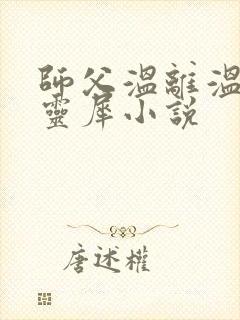 師父溫離溫
靈犀小說
唐述權